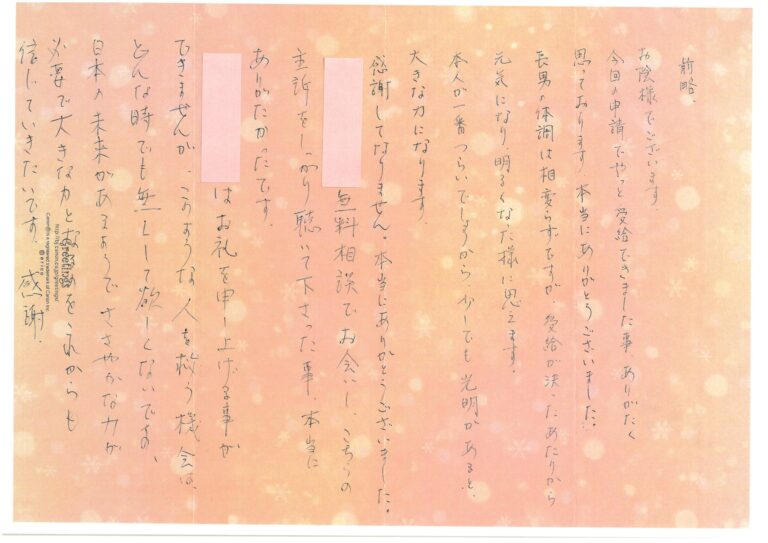 前略、
お陰様でございます。
今回の申請でやっと受給できました事、ありがたく
思っております。本当にありがとうございました。
長男の体調は相変らずですが、受給が決ったあたりから
元気になり、明るくなった様に思えます。
本人が一番つらいでしょうから、少しでも光明があると、
大きな力になります。
感謝してなりません。本当にありがとうございました。
無料相談でお会いし、こちらの
主訴をしっかり聴いて下さった事、本当に
ありがたかったです。
はお礼を申し上げる事が
できませんが、このような人を救う機会は、
どんな時でも無くして欲しくないですね、
日本の未来があるようで ささやかな力が
必要で大きな力と
これからも
信じていきたいです。感謝.
Greetings